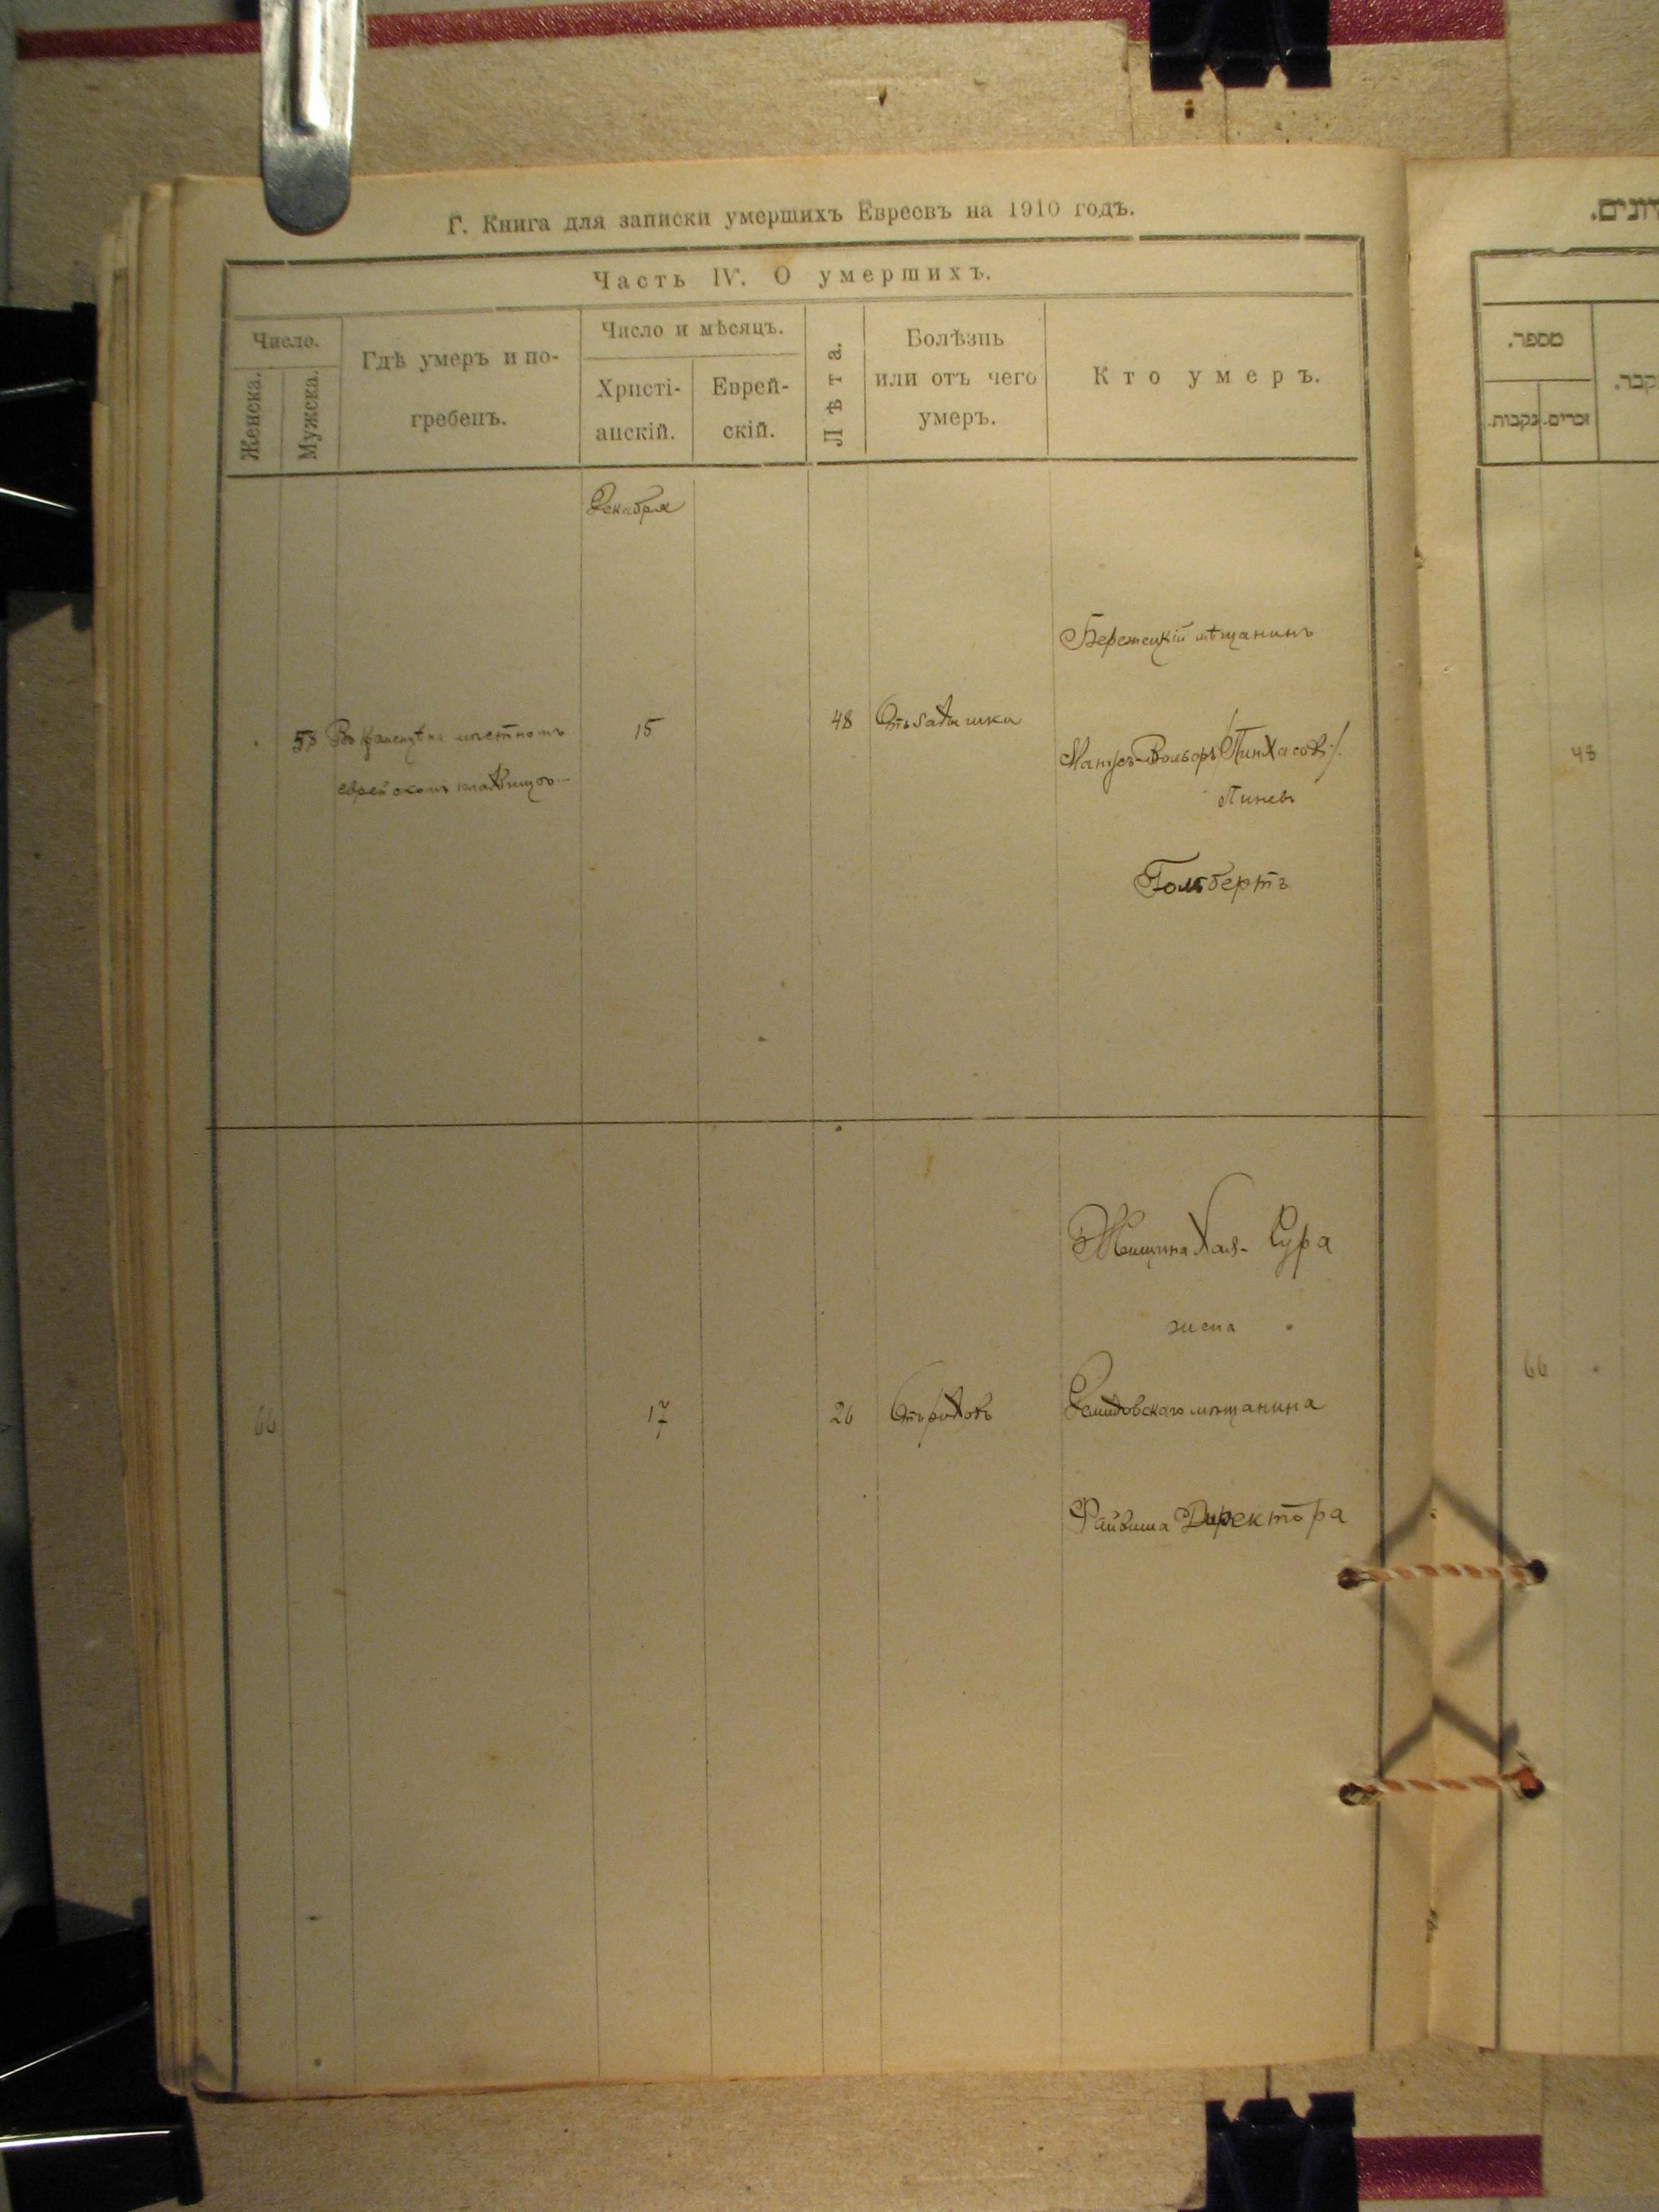 Г. Книга для записки умершихъ Евреевъ на 1910 годъ.
Часть IV. О умершихъ.
Число.
Женска.
Мужска.
Гдѣ умеръ и по-
гребенъ.
Число и мѣсяцъ.
Христі-
анскій.
Еврей-
скій.
Лѣта.
Болѣзнь
или отъ чего
умеръ.
Кто умеръ.
Декабря
Бережецкій мѣщанинъ
58 Въ Кременцѣ на мѣстномъ 15 48 Отъ одышки
Пинхасов
еврейскомъ кладбищѣ
Пинев
Гольбертъ
Женщина Хая-Сура
жена
66 17 26 Отъ родовъ
мѣщанина
Файвиша Директора
מספר.
זכרים.
נקבות.
48
66